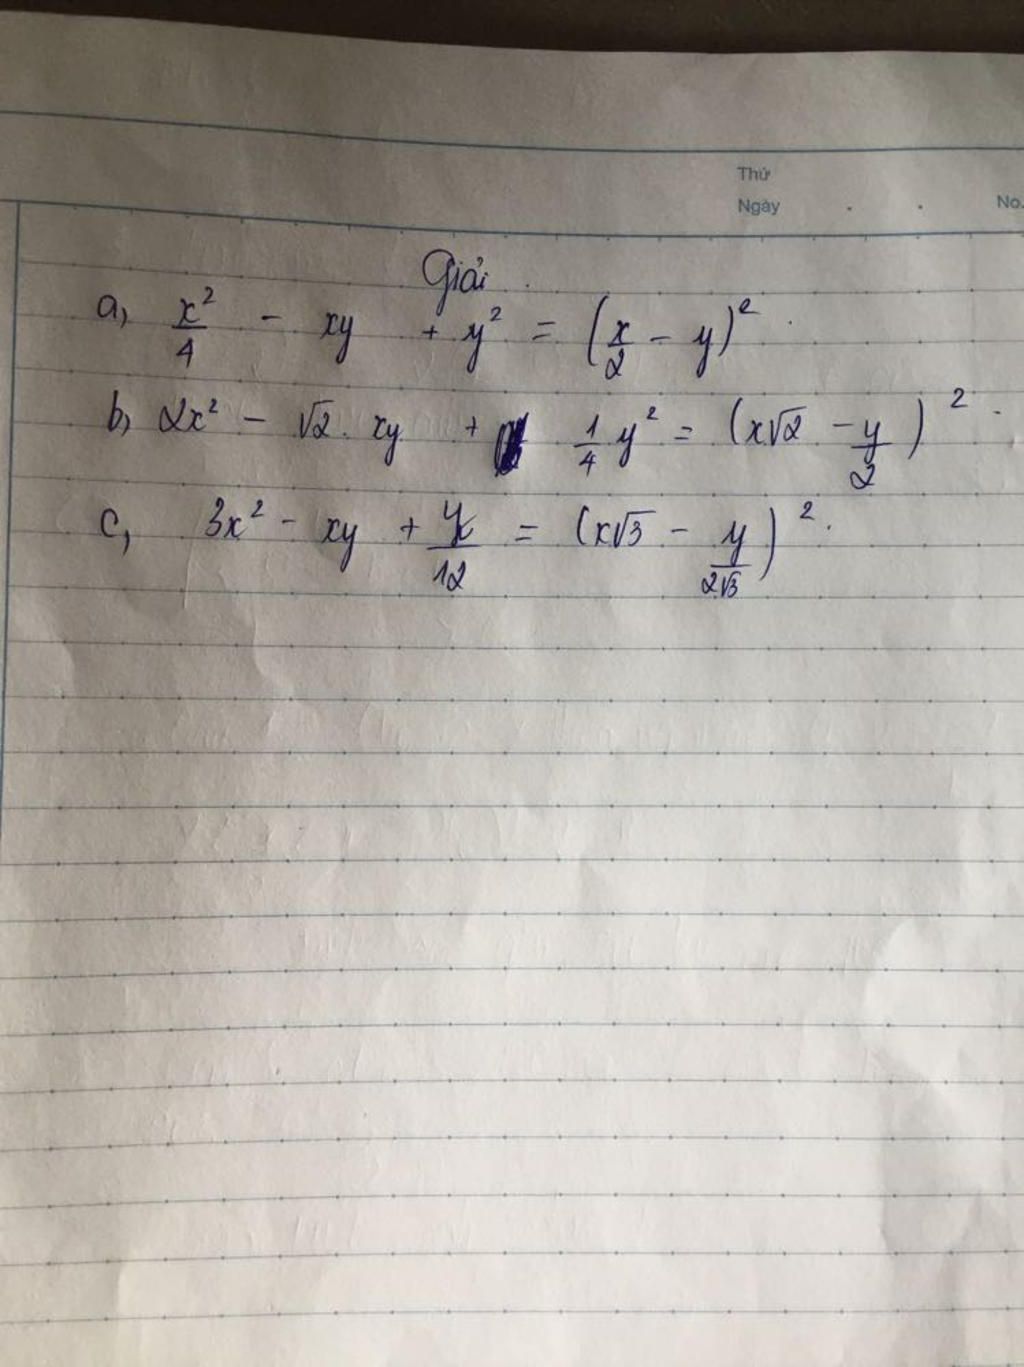 Thứ
Ngày . . No.
Giải
a, x²/4 - xy + y² = (x/2 - y)².
b, 2x² - √2. xy + 1/4 y² = (x√2 - y/2)².
c, 3x² - xy + /12 = (x√3 - y/2√3)².